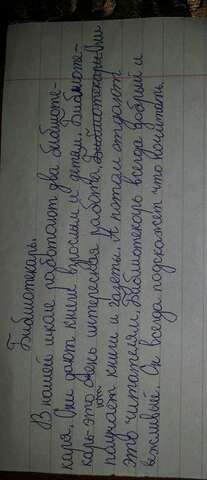 Библиотекарь.
В нашей школе работают два библиоте-
каря. Они дают книги взрослым и детям. Библиоте-
карь-это очень интересная работа. Библиотекарь
получает книги и газеты. А потом отдают
это читателям. Библиотекарь всегда добрый и
вежливый. Он всегда подскажет что почитать.